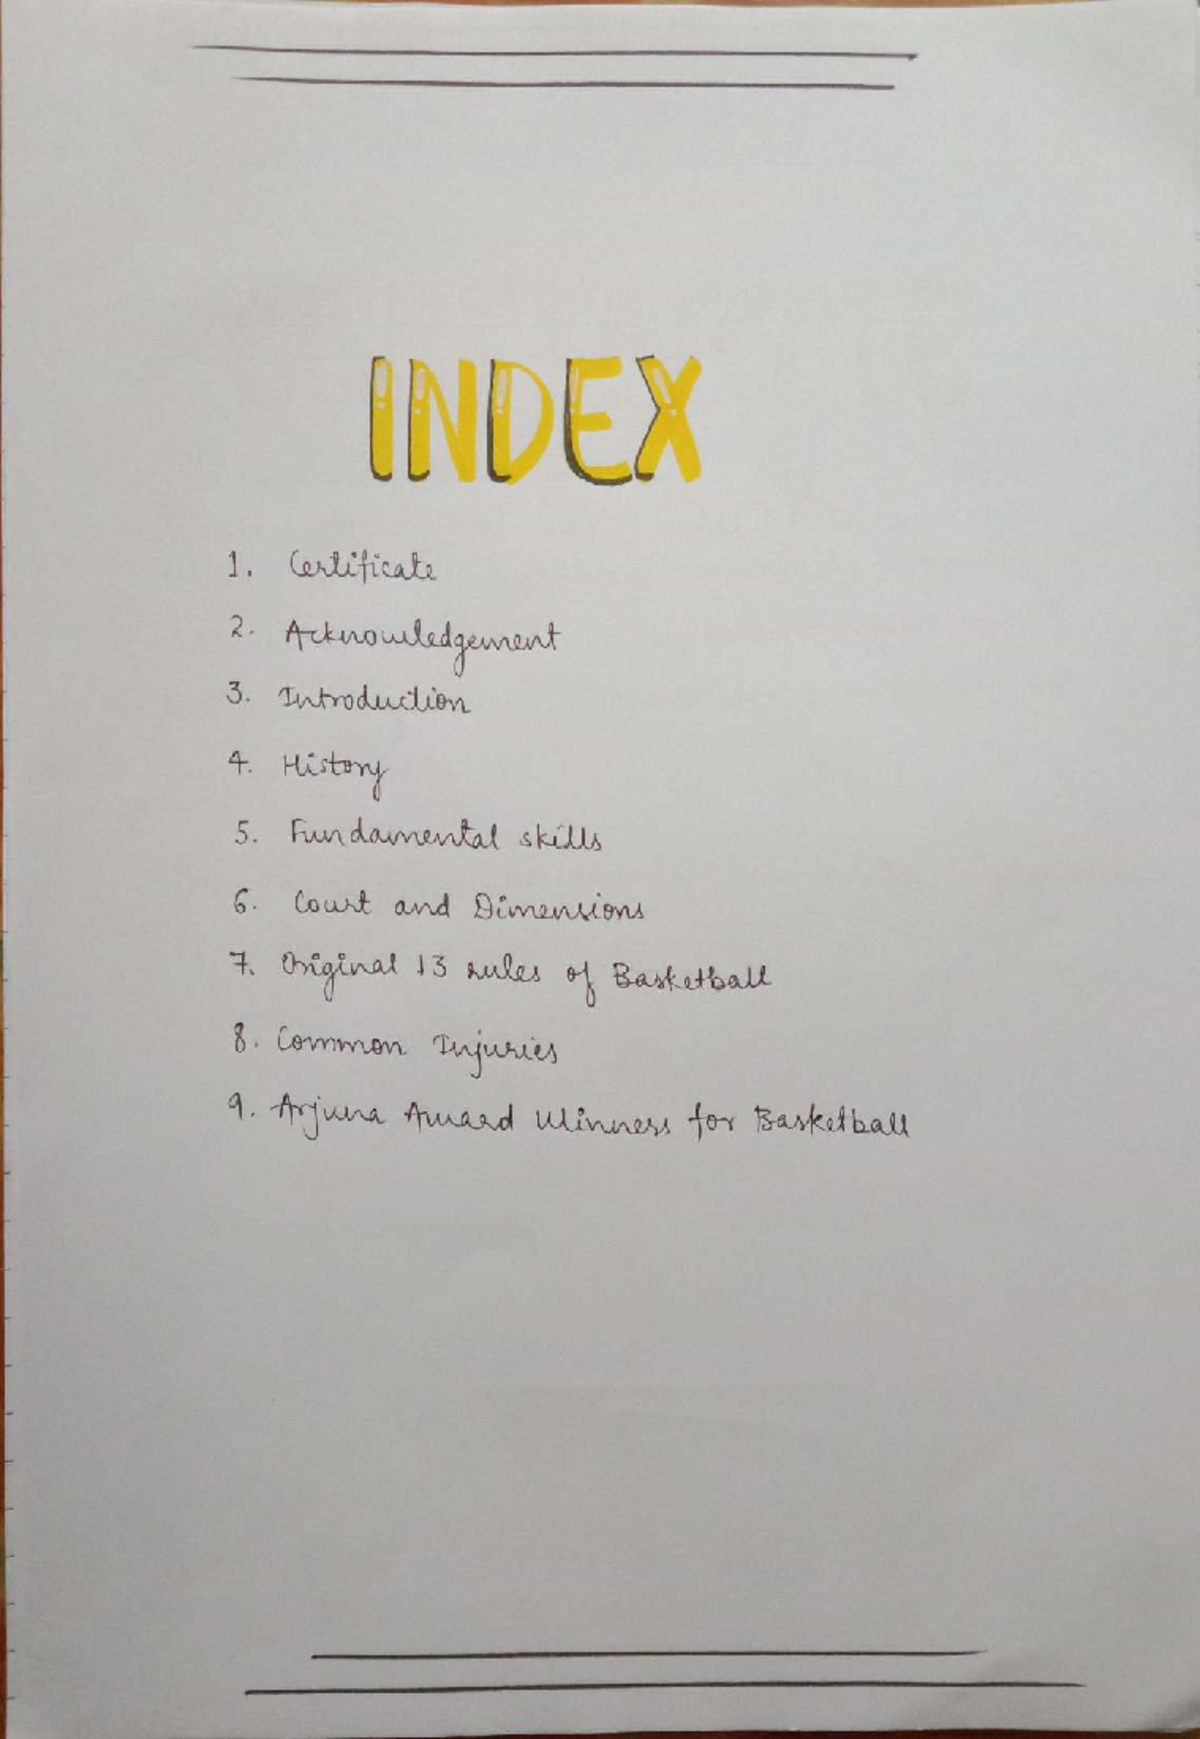 INDEX
1. Certificate
2. Acknowledgement
3. Introduction
4. History
5. Fundamental skills
6. Court and Dimensions
7. Original 13 rules of Basketball
8. Common Injuries
9. Arjuna Award Winners for Basketball